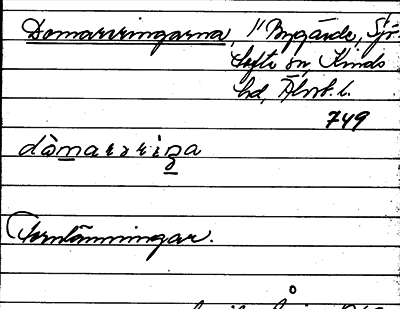 Domarringarna, 1" Bygärde, Sjö-
tofta sn, Kinds
hd, Älvsb. l.
749
dòmarɩrɩŋa
(Fornlämningar.